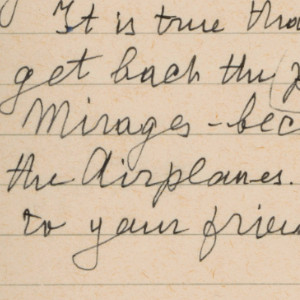 It is true tha
get back the
Mirages - bec
the Airplanes.
to your frien